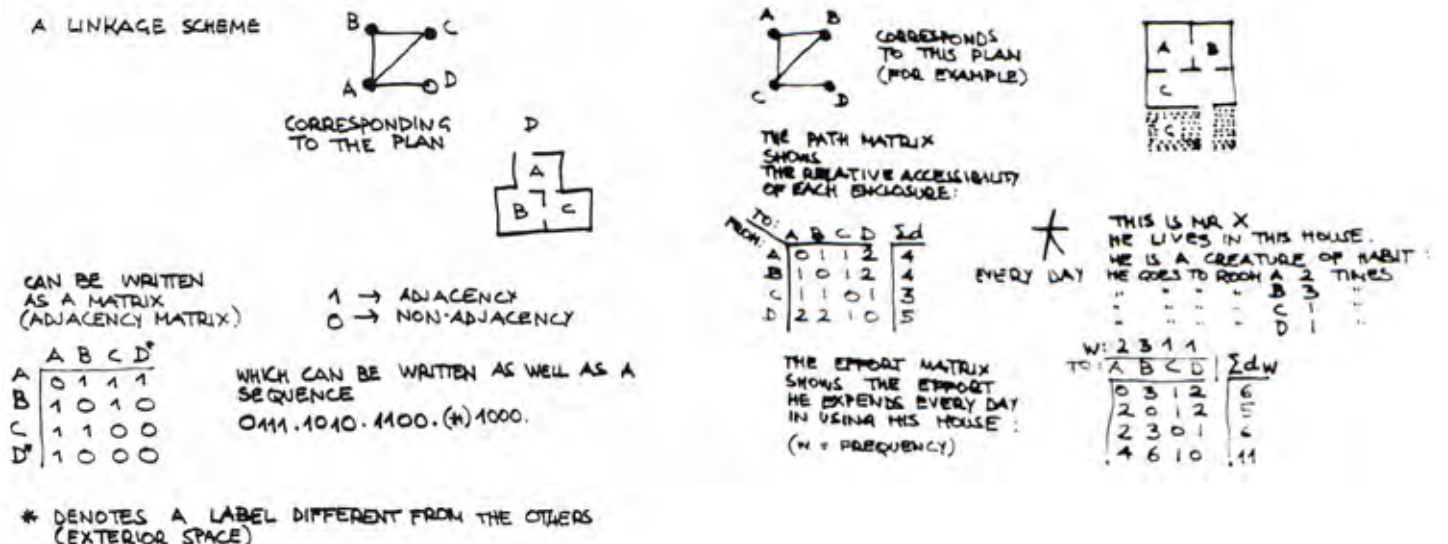 A LINKAGE SCHEME
B
C
A
D
CORRESPONDING
TO THE PLAN
D
A
B C
CAN BE WRITTEN
AS A MATRIX
(ADJACENCY MATRIX)
1 → ADJACENCY
0 → NON-ADJACENCY
A B C D*
A 0 1 1 1
B 1 0 1 0
C 1 1 0 0
D* 1 0 0 0
WHICH CAN BE WRITTEN AS WELL AS A
SEQUENCE
0111.1010.1100.(*)1000.
* DENOTES A LABEL DIFFERENT FROM THE OTHERS
(EXTERIOR SPACE)
A B
C D
CORRESPONDS
TO THIS PLAN
(FOR EXAMPLE)
A B
C
C
THE PATH MATRIX
SHOWS
THE RELATIVE ACCESSIBILITY
OF EACH ENCLOSURE:
TO:
FROM:
A B C D Σd
A 0 1 1 2 4
B 1 0 1 2 4
C 1 1 0 1 3
D 2 2 1 0 5
THIS IS MR X
HE LIVES IN THIS HOUSE.
HE IS A CREATURE OF HABIT:
EVERY DAY HE GOES TO ROOM A 2 TIMES
" " " " B 3 "
" " " " C 1 "
" " " " D 1 "
THE EFFORT MATRIX
SHOWS THE EFFORT
HE EXPENDS EVERY DAY
IN USING HIS HOUSE:
(W = FREQUENCY)
W: 2 3 1 1
TO: A B C D Σdw
0 3 1 2 6
2 0 1 2 5
2 3 0 1 6
4 6 1 0 11